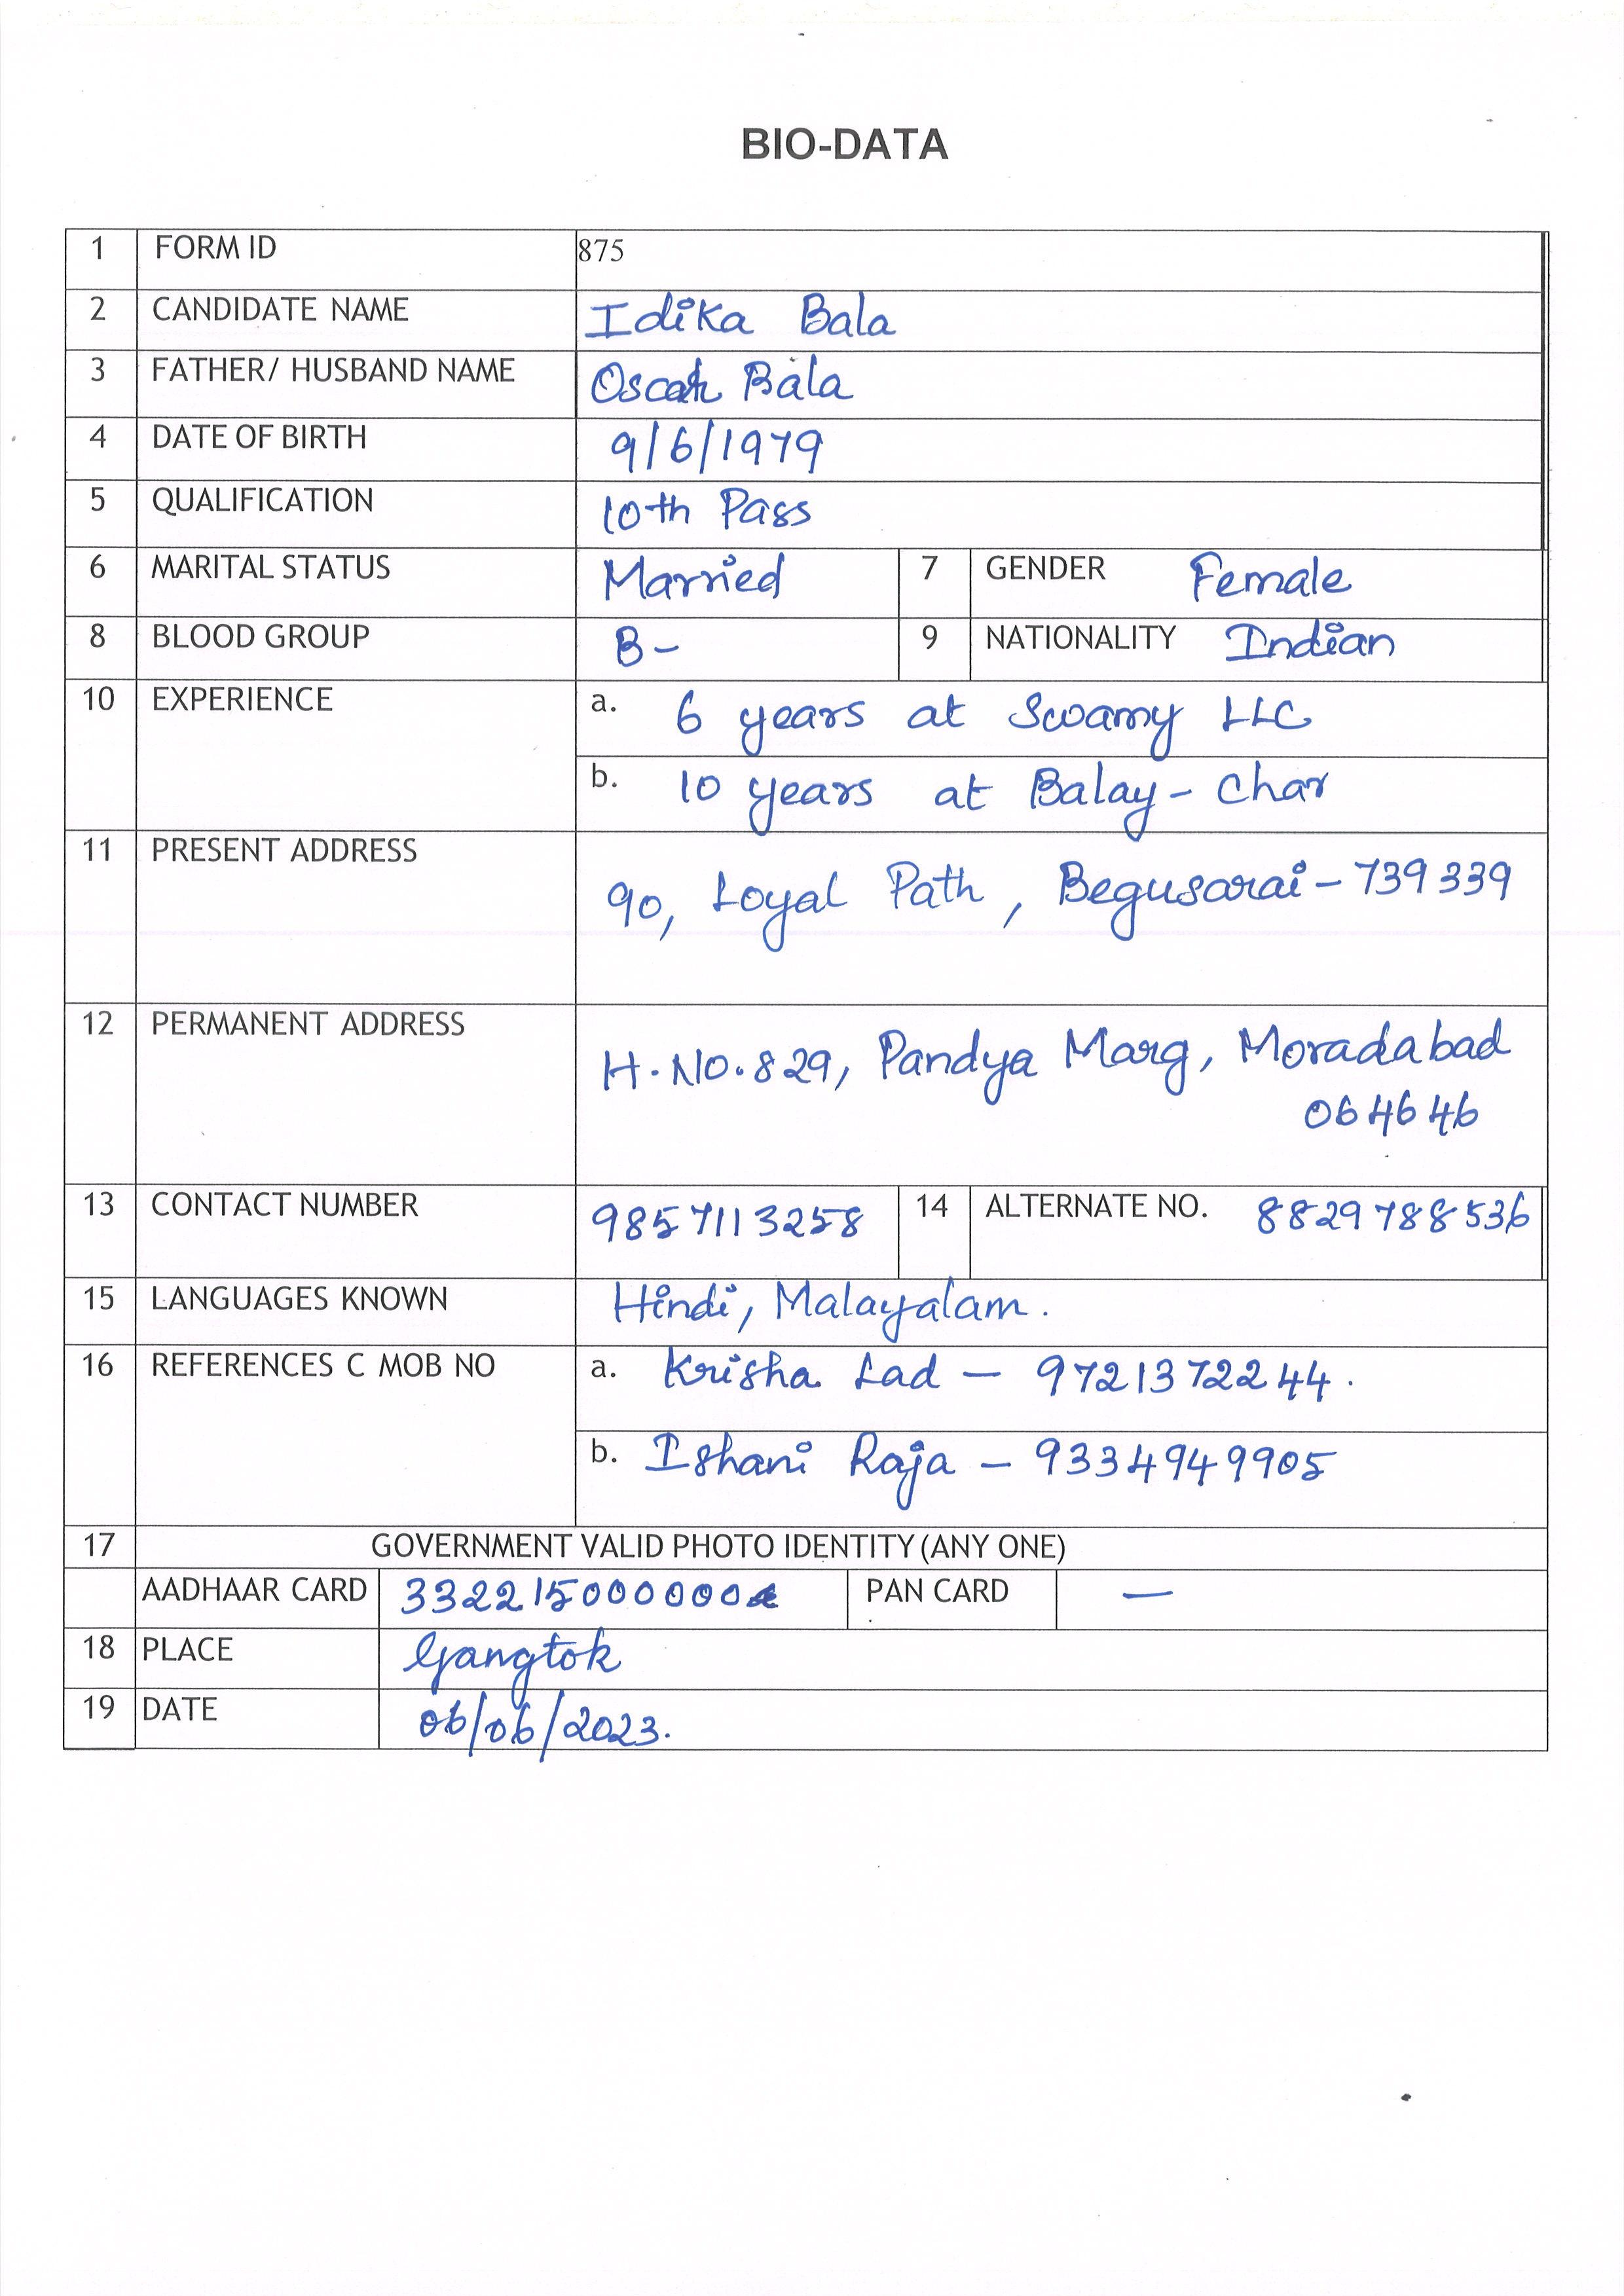 BIO-DATA
1 FORM ID 875
2 CANDIDATE NAME Idika Bala
3 FATHER/ HUSBAND NAME Oscar Bala
4 DATE OF BIRTH 9/6/1979
5 QUALIFICATION 10th Pass
6 MARITAL STATUS Married 7 GENDER Female
8 BLOOD GROUP B- 9 NATIONALITY Indian
10 EXPERIENCE a. 6 years at Swamy LLC
b. 10 years at Balay - Char
11 PRESENT ADDRESS
90, Loyal Path, Begusarai - 739339
12 PERMANENT ADDRESS
H.NO.829, Pandya Marg, Moradabad
064646
13 CONTACT NUMBER 9857113258 14 ALTERNATE NO. 8829788536
15 LANGUAGES KNOWN Hindi, Malayalam.
16 REFERENCES C MOB NO a. Krisha Lad - 9721372244.
b. Ishani Raja - 9334949905
17 GOVERNMENT VALID PHOTO IDENTITY (ANY ONE)
AADHAAR CARD PAN CARD —
18 PLACE Gangtok
19 DATE 06/06/2023.